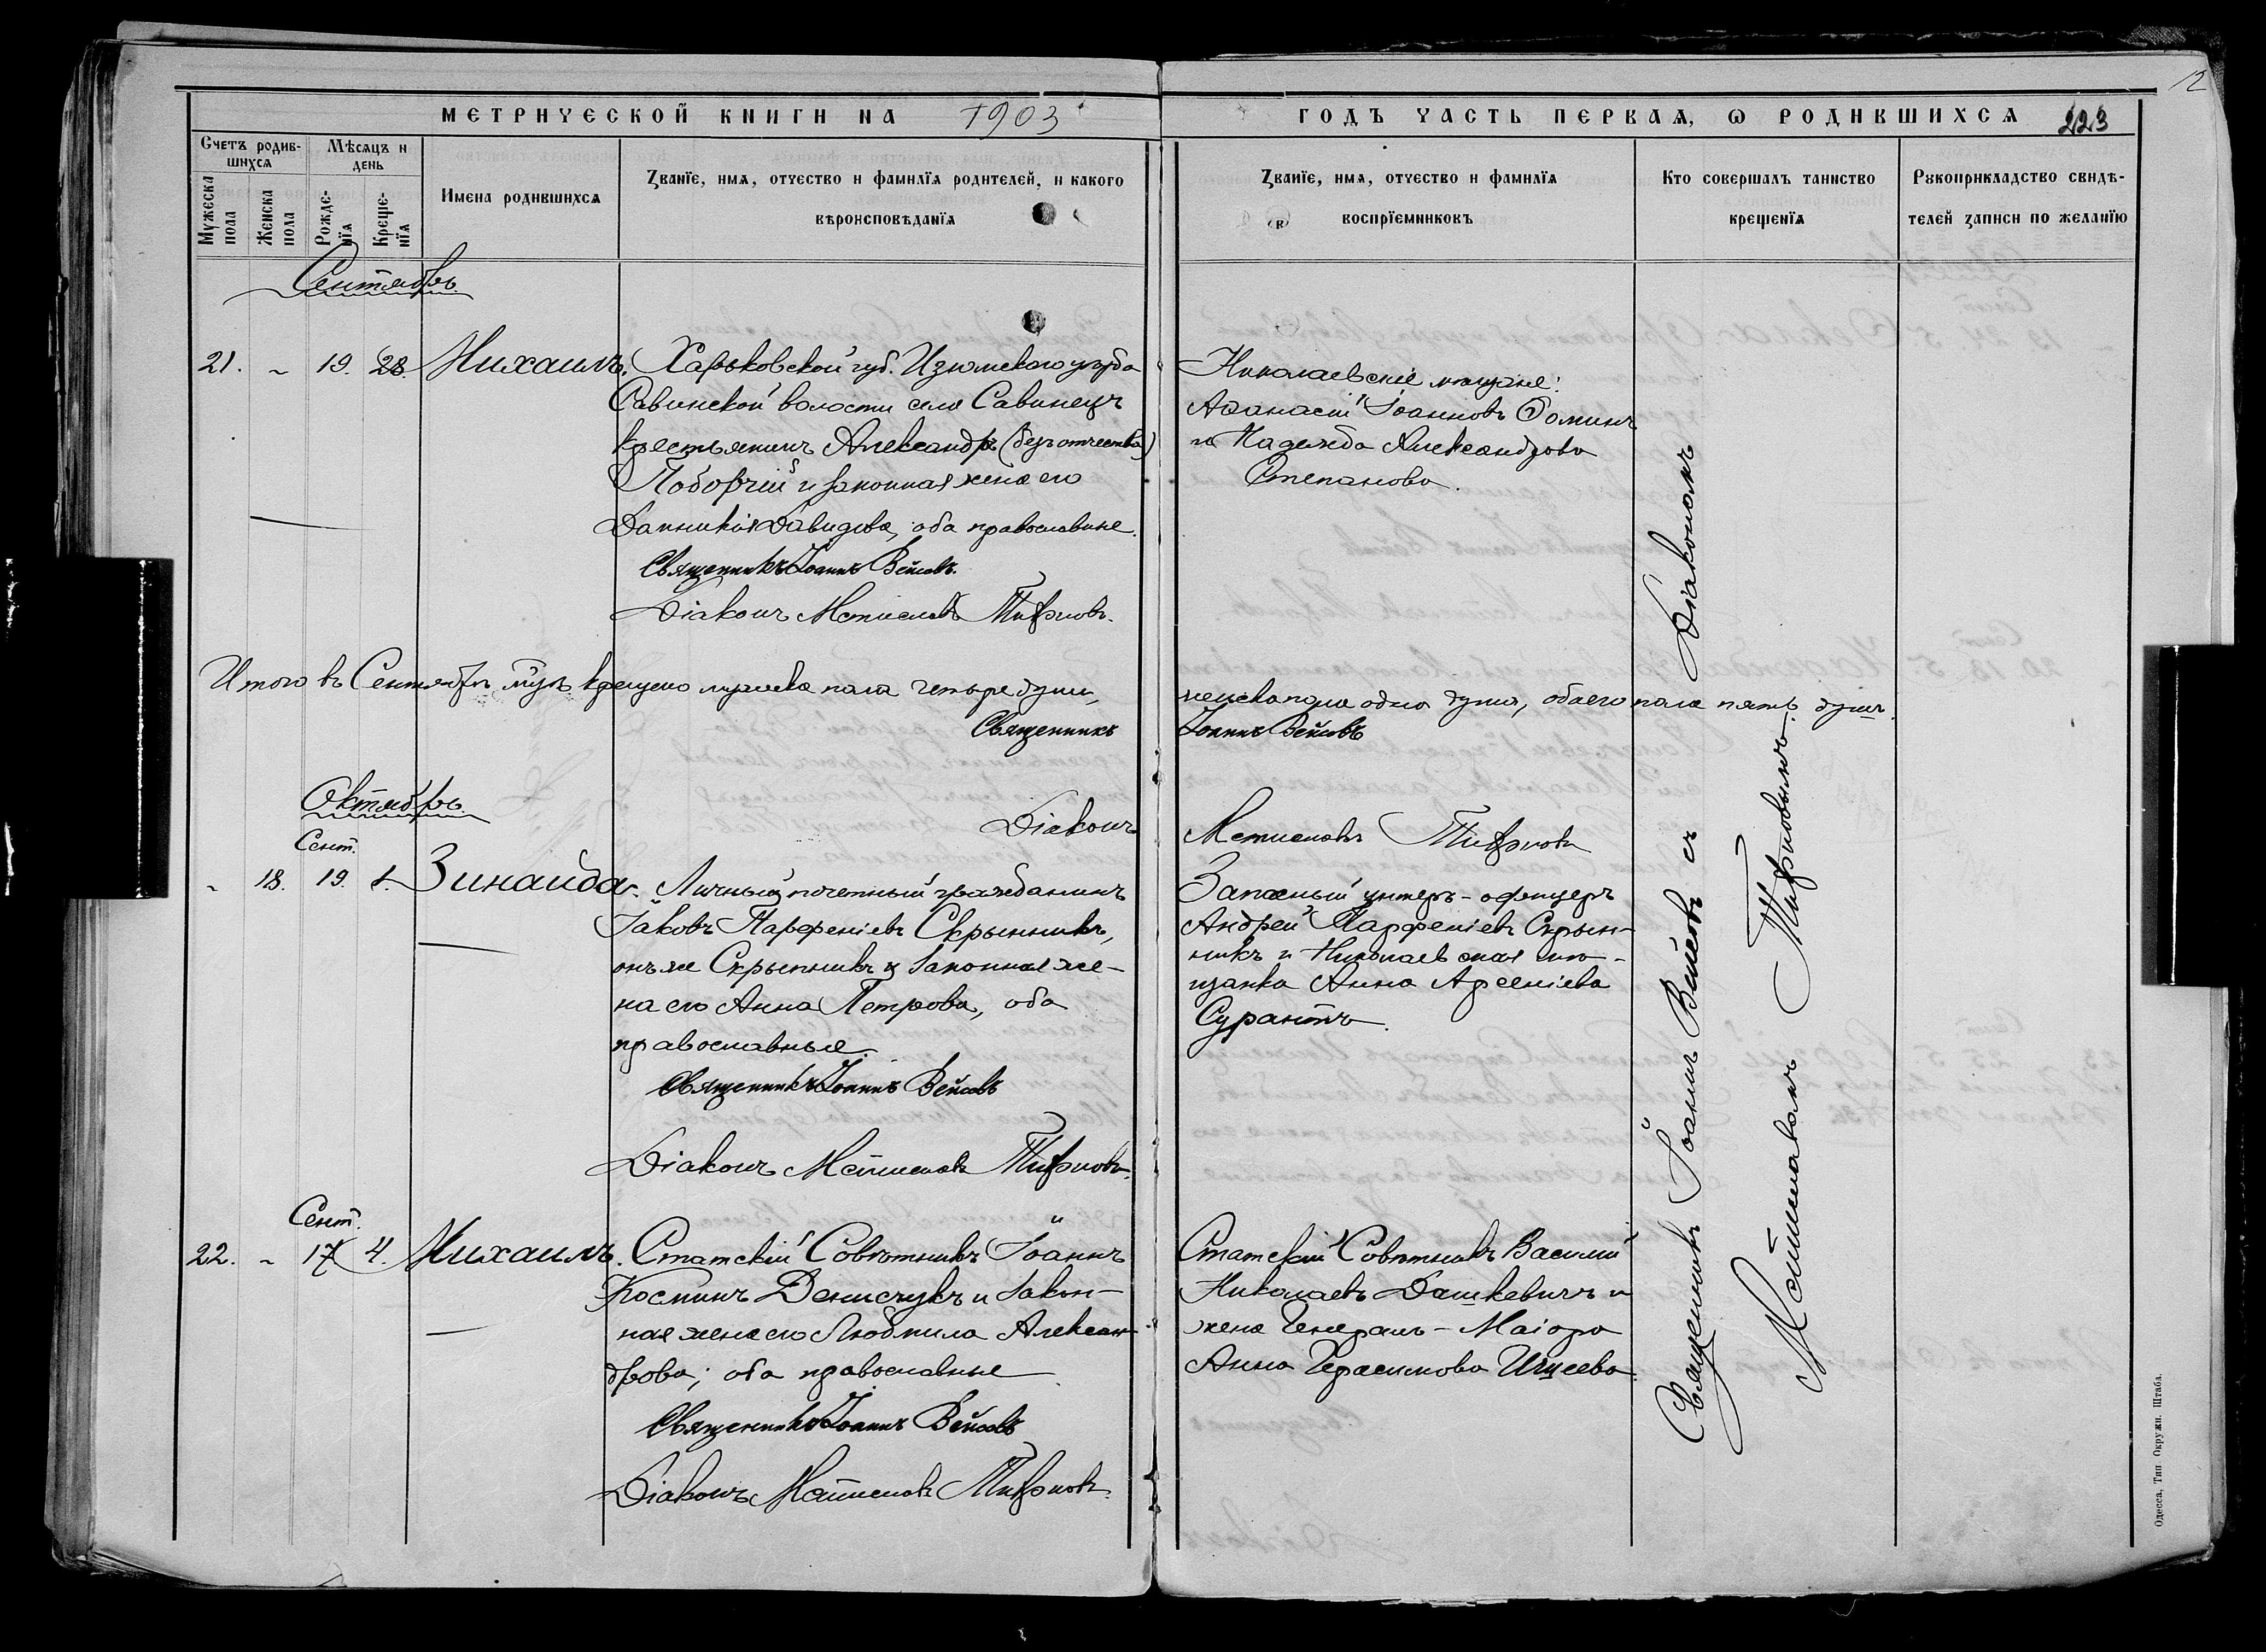 12
МЕТРИЧЕСКОЙ КНИГИ НА 1903
ГОДЪ ЧАСТЬ ПЕРВАЯ, Ѡ РОДИВШИХСЯ 223
Счетъ родив-
шихся
Мѣсяцъ и
день
Мужеска
пола
Женска
пола
Рожде-
нїя
Креще-
нїя
Имена родившихся
Званїе, имя, отчество и фамилїя родителей, и какого
вѣроисповѣданїя
Званїе, имя, отчество и фамилїя
воспрїемниковъ
Кто совершалъ таинство
крещенїя
Рукоприкладство свидѣ-
телей записи по желанїю
Сентябрь
21. 19. 28. Михаилъ.
Харьковской губ. Изюмскаго уѣзда
Савинской волости села Савинецъ
крестьянинъ Александръ (безъ отчества)
Поборчій и законная жена его
Давидова, оба православные.
Священникъ Іоаннъ Вейсовъ.
Діаконъ Мстиславъ
Николаевскіе мѣщане:
Аѳанасій Іоанновъ Ѳоминъ
и Надежда Александрова
Степанова.
Итого въ Сентябрѣ мцѣ крещено мужеска пола четыре души,
женска пола одна душа, обоего пола пять душъ.
Священникъ
Іоаннъ Вейсовъ
Діаконъ
Мстиславъ
Октябрь
Сент.
18. 19. 1. Зинаида.
Личный почетный гражданинъ
Іаковъ Парѳеніевъ Скрынникъ,
онъ же Скрыпникъ и законная же-
на его Анна Петрова, оба
православные.
Священникъ Іоаннъ Вейсовъ
Діаконъ Мстиславъ
Запасный унтеръ-офицеръ
Андрей Парѳеніевъ Скрын-
никъ и Николаевская мѣ-
щанка Анна Арсеніева
Сурантъ.
Сент.
22. 17 4. Михаилъ.
Статскій Совѣтникъ Іоаннъ
Косминъ Денисчукъ и закон-
ная жена его Людмила Алексан-
дрова; оба православные.
Священникъ Іоаннъ Вейсовъ
Діаконъ Мстиславъ
Статскій Совѣтникъ Василій
Николаевъ Дашкевичъ и
жена Генералъ-Маіора
Анна Герасимова Ищеева.
Священникъ Іоаннъ Вейсовъ съ Діакономъ
Мстиславомъ
Одесса, Тип Окружн. Штаба.